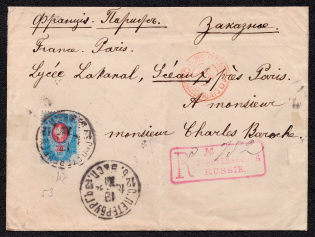 Францiя. Парижъ. Заказное.
France. Paris.
Lycée Lakanal, Sceaux, près Paris.
A monsieur
monsieur Charles Baroche.
R
RUSSIE.
С.ПЕТЕРБУРГЪ